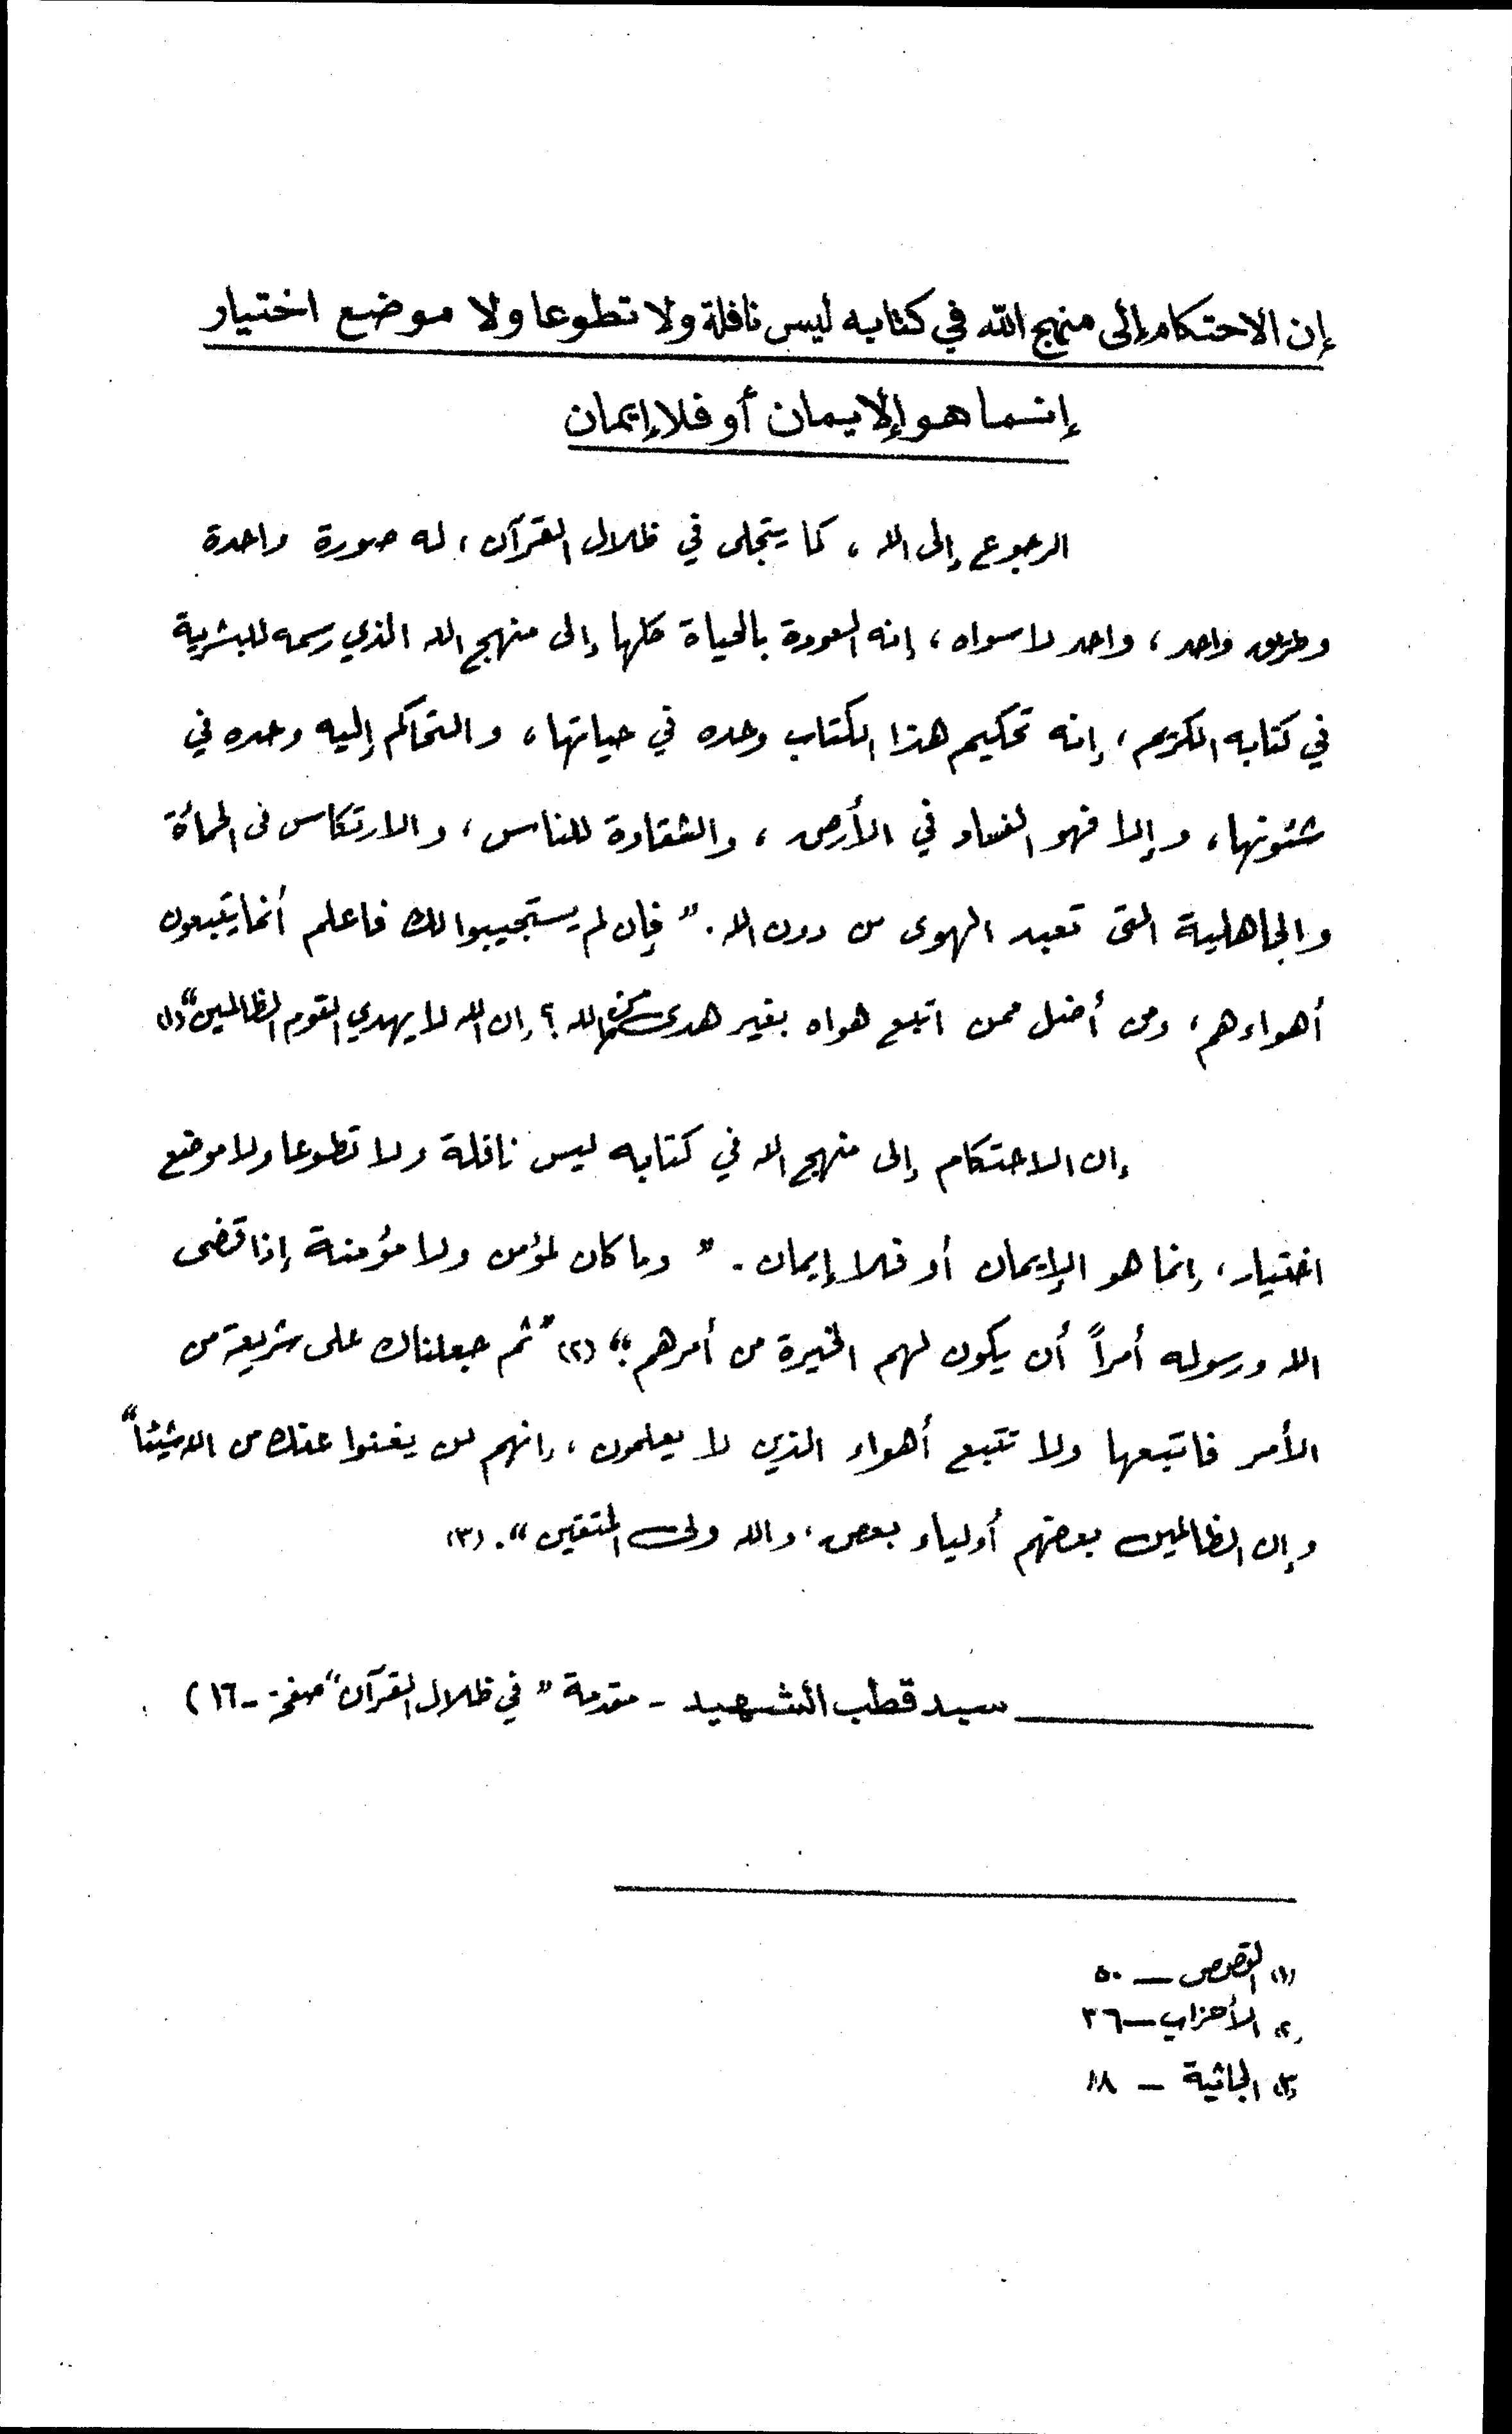 إن الاحتكام إلى منهج الله في كتابه ليس نافلة ولا تطوعا ولا موضع اختيار
إنما هو الإيمان أو فلا إيمان
الرجوع إلى الله، كما يتجلى في ظلال القرآن، له صورة واحدة
وطريق واحد، واحد لا سواه، إنه العودة بالحياة كلها إلى منهج الله الذي رسمه للبشرية
في كتابه الكريم، إنه تحكيم هذا الكتاب وحده في حياتها، والتحاكم إليه وحده في
شئونها، وإلا فهو الفساد في الأرض، والشقاوة للناس، والارتكاس في الحمأة
والجاهلية التي تعبد الهوى من دون الله. "فإن لم يستجيبوا لك فاعلم أنما يتبعون
أهواءهم، ومن أضل ممن اتبع هواه بغير هدى من الله؟ إن الله لا يهدي القوم الظالمين" (١)
إن الاحتكام إلى منهج الله في كتابه ليس نافلة ولا تطوعا ولا موضع
اختيار، إنما هو الإيمان أو فلا إيمان. "وما كان لمؤمن ولا مؤمنة إذا قضى
الله ورسوله أمراً أن يكون لهم الخيرة من أمرهم" (٢) "ثم جعلناك على شريعة من
الأمر فاتبعها ولا تتبع أهواء الذين لا يعلمون، إنهم لن يغنوا عنك من الله شيئاً"
وإن الظالمين بعضهم أولياء بعض، والله ولي المتقين". (٣)
سيد قطب الشهيد - مقدمة "في ظلال القرآن" صفحة - ١٦)
(١) القصص — ٥٠
(٢) الأحزاب — ٣٦
(٣) الجاثية — ١٨